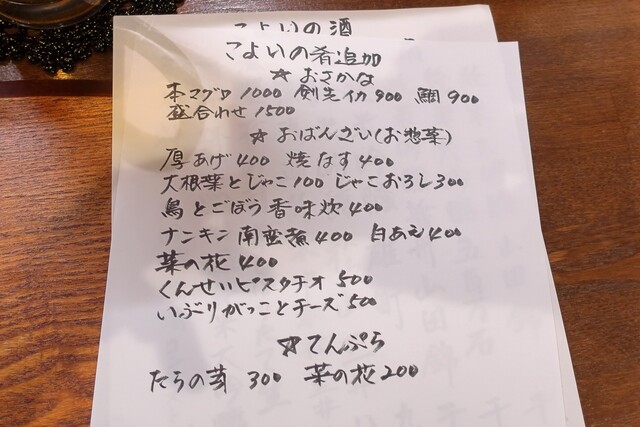 こよいの酒
こよいの肴追加
☆おさかな
本マグロ 1000 剣先イカ 900 鯛 900
盛合わせ 1500
☆おばんざい(お惣菜)
厚あげ 400 焼なす 400
大根葉とじゃこ 100 じゃこおろし 300
鳥とごぼう香味炊 400
ナンキン南蛮煮 400 白あえ 400
菜の花 400
くんせいピスタチオ 500
いぶりがっことチーズ 500
☆てんぷら
たらの芽 300 菜の花 200